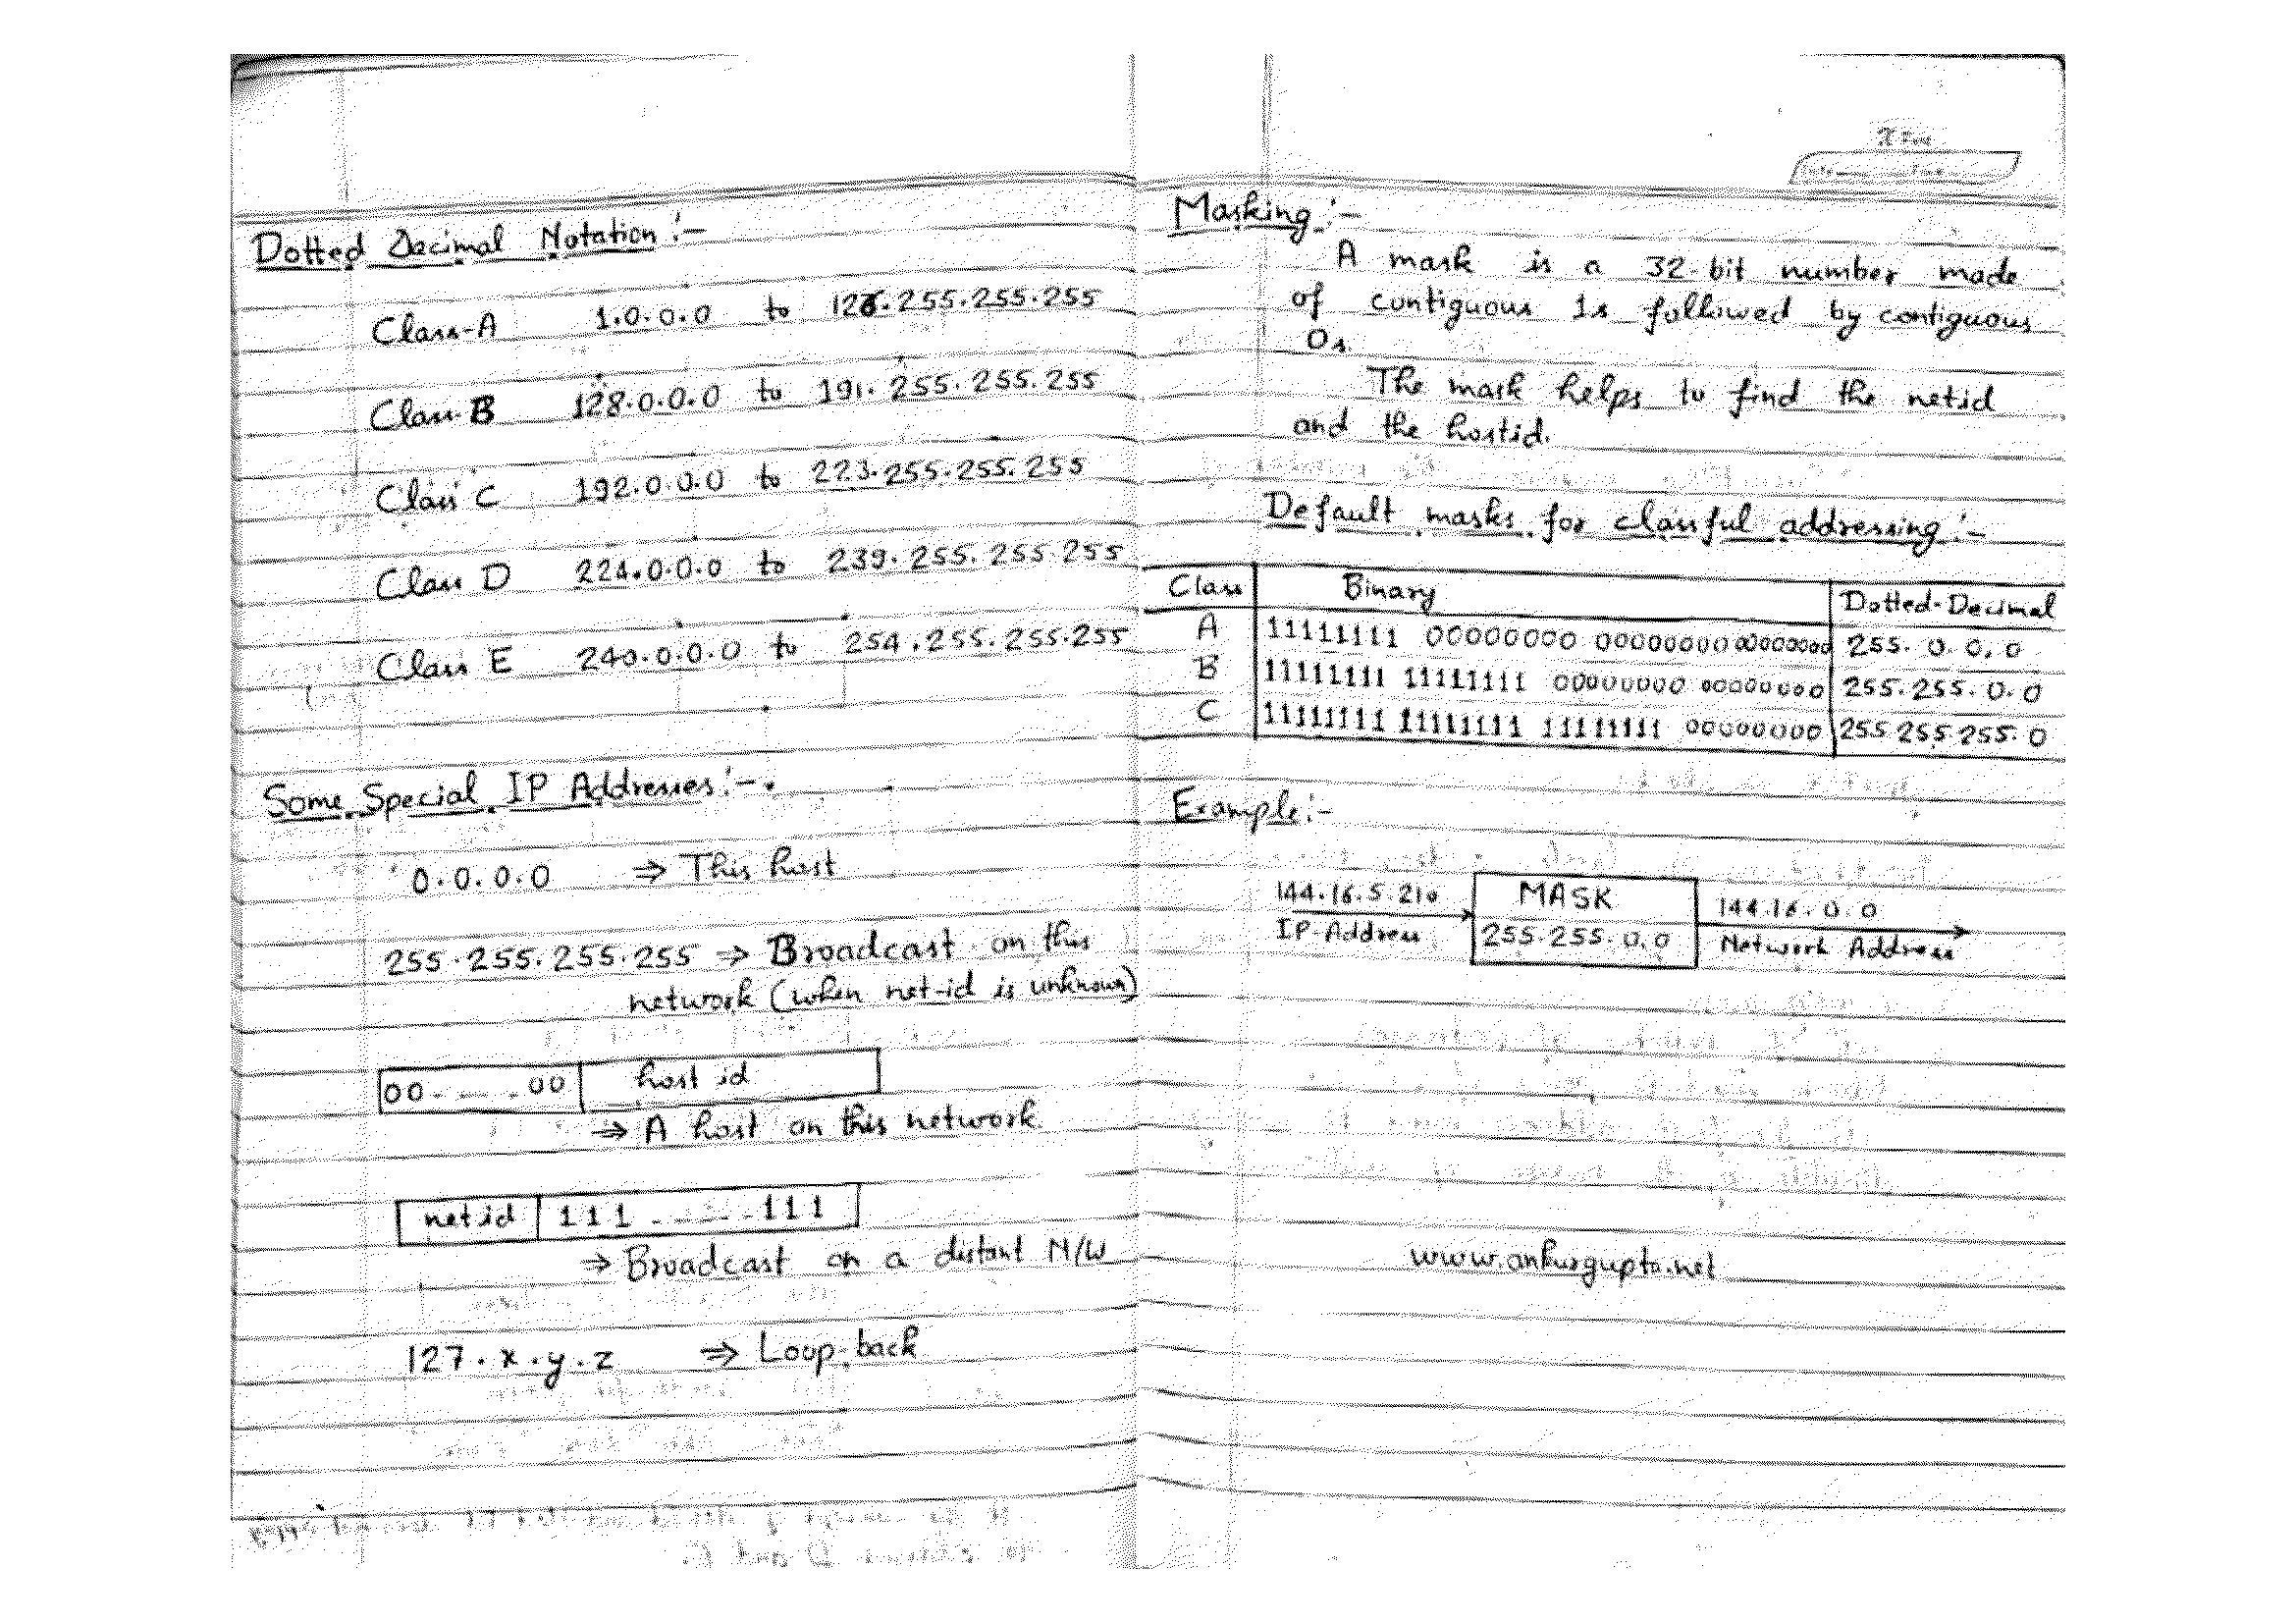 Dotted Decimal Notation :-
Class-A 1.0.0.0 to 126.255.255.255
Class-B 128.0.0.0 to 191.255.255.255
Class C 192.0.0.0 to 223.255.255.255
Class D 224.0.0.0 to 239.255.255.255
Class E 240.0.0.0 to 254.255.255.255
Some Special IP Addresses :-
0.0.0.0 ⇒ This host
255.255.255.255 ⇒ Broadcast on this
network (when net-id is unknown)
00-----00 host id
⇒ A host on this network.
netid 111-----111
⇒ Broadcast on a distant N/W
127.x.y.z ⇒ Loop-back
Masking :-
A mask is a 32-bit number made
of contiguous 1s followed by contiguous
0s.
The mask helps to find the netid
and the hostid.
Default masks for classful addressing :-
Class Binary Dotted-Decimal
A 11111111 00000000 00000000 00000000 255.0.0.0
B 11111111 11111111 00000000 00000000 255.255.0.0
C 11111111 11111111 11111111 00000000 255.255.255.0
Example :-
144.16.5.210 MASK 144.16.0.0
IP-Address 255.255.0.0 Network Address
www.ankurgupta.net